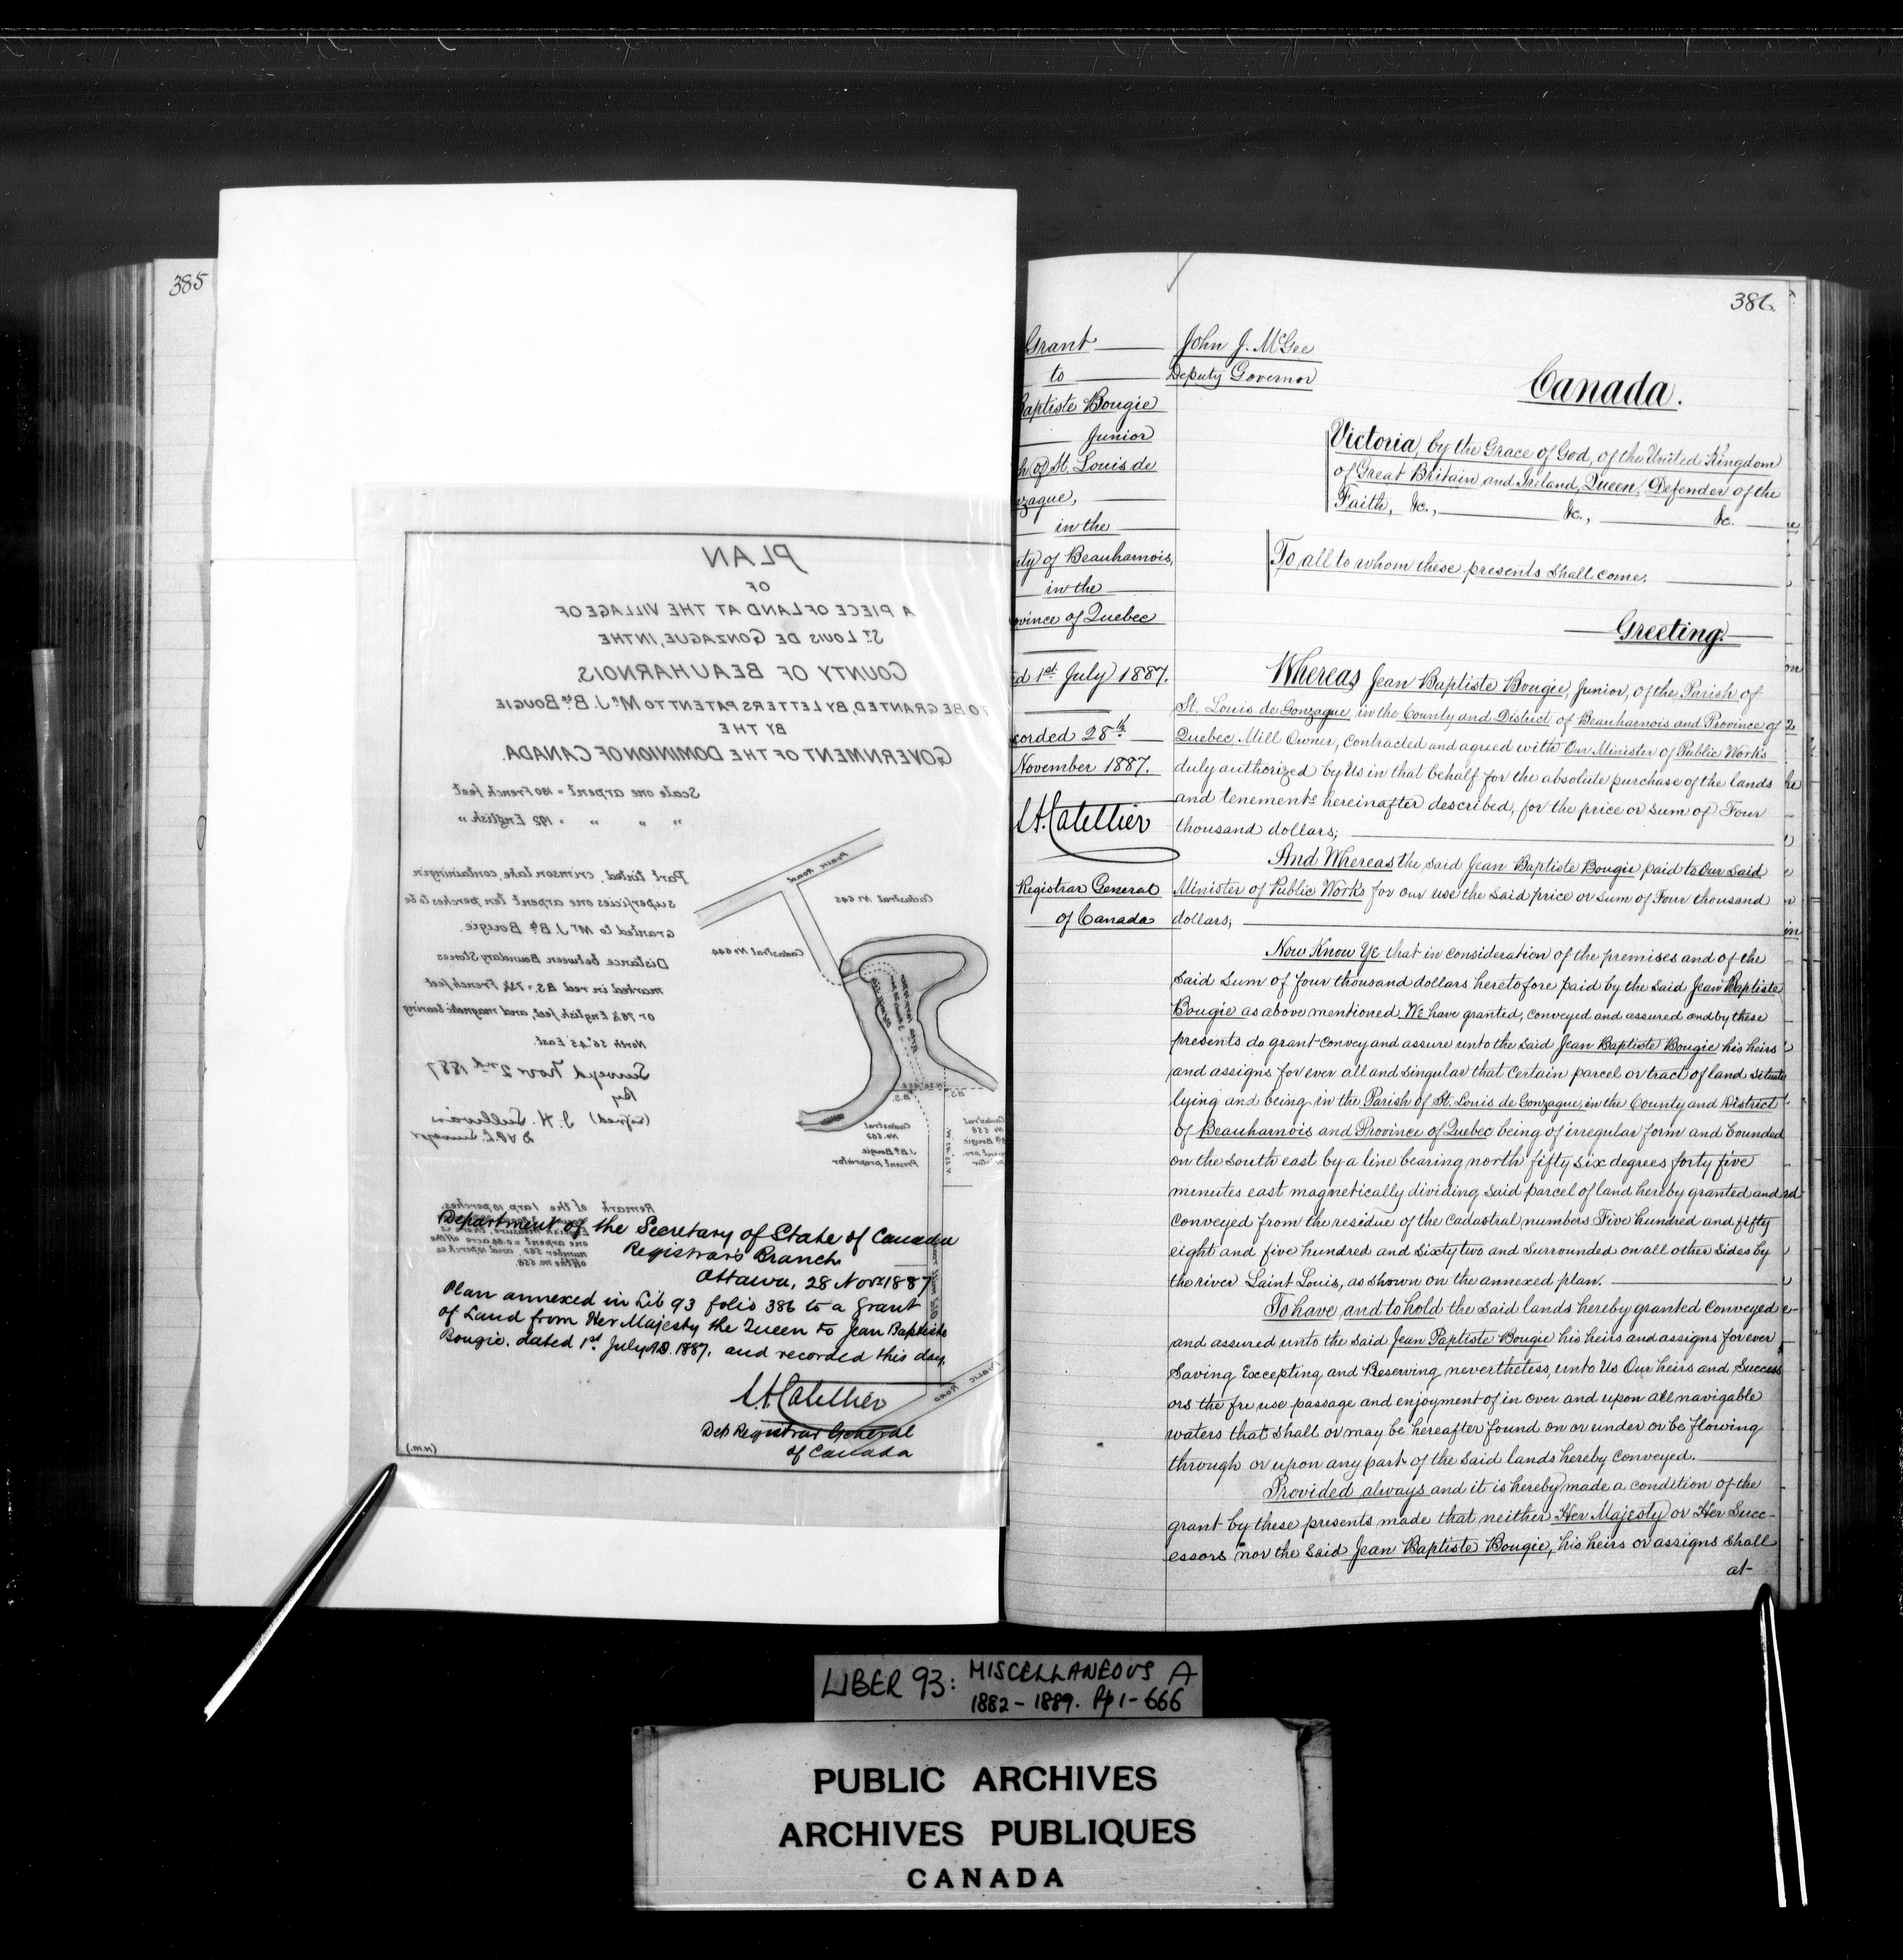 385
PLAN
OF
A PIECE OF LAND AT THE VILLAGE OF
ST LOUIS DE GONZAGUE, IN THE
COUNTY OF BEAUHARNOIS,
TO BE GRANTED, BY LETTERS PATENT TO Mr J. Bte BOUGIE
BY THE
GOVERNMENT OF THE DOMINION OF CANADA.
Scale one arpent = 180 French feet
" " " = 192 English "
Part tinted, crimson lake, containing in
superficies one arpent ten perches to be
Granted to Mr J. Bte Bougie.
Distance between Boundary Stones
marked in red B.S. = French feet
or English feet, and magnetic bearing
North 56° 45' East.
Surveyed Novr 2nd 1887
By
(signed) J. H. Sullivan
Surveyor
Public Road
Cadastral No 645
Cadastral No 644
B.S.
B.S.
Cadastral
No. 562
J. Bte Bougie
Present proprietor
Cadastral
No 558
Remark of the 1 arp 10 perches
Department of the Secretary of State of Canada
Registrar's Branch
Ottawa, 28 Novr 1887
Plan annexed in Lib 93 folio 386 to a grant
of Land from Her Majesty the Queen to Jean Baptiste
Bougie. dated 1st July A.D. 1887, and recorded this day.
L.A. Catellier
Dep Registrar General
of Canada
Public Road
(N.M.)
386
Grant
to
Baptiste Bougie
Junior
h of St. Louis de
nzague,
in the
nty of Beauharnois,
in the
ovince of Quebec
d 1st July 1887.
corded 28th
November 1887.
L.A. Catellier
Registrar General
of Canada
John J. McGee
Deputy Governor
Canada.
Victoria, by the Grace of God, of the United Kingdom
of Great Britain and Ireland, Queen, Defender of the
Faith, &c., &c., &c.
To all to whom these presents shall come,
Greeting.
Whereas Jean Baptiste Bougie, Junior, of the Parish of
St. Louis de Gonzague in the County and District of Beauharnois and Province of
Quebec Mill Owner, contracted and agreed with Our Minister of Public Works
duly authorized by Us in that behalf for the absolute purchase of the lands
and tenements hereinafter described, for the price or sum of Four
thousand dollars;
And Whereas the said Jean Baptiste Bougie paid to Our said
Minister of Public Works for our use the said price or sum of Four thousand
dollars;
Now Know Ye that in consideration of the premises and of the
said sum of four thousand dollars heretofore paid by the said Jean Baptiste
Bougie as above mentioned We have granted, conveyed and assured and by these
presents do grant convey and assure unto the said Jean Baptiste Bougie his heirs
and assigns for ever all and singular that certain parcel or tract of land situate
lying and being in the Parish of St. Louis de Gonzague, in the County and District
of Beauharnois and Province of Quebec being of irregular form and bounded
on the south east by a line bearing north fifty six degrees forty five
minutes east magnetically dividing said parcel of land hereby granted and
conveyed from the residue of the cadastral numbers Five hundred and fifty
eight and five hundred and sixty two and surrounded on all other sides by
the river Saint Louis, as shown on the annexed plan.
To have and to hold the said lands hereby granted conveyed
and assured unto the said Jean Baptiste Bougie his heirs and assigns for ever
Saving Excepting and Reserving nevertheless, unto Us Our heirs and Success
ors the fre use passage and enjoyment of in over and upon all navigable
waters that shall or may be hereafter found on or under or be flowing
through or upon any part of the said lands hereby conveyed.
Provided always and it is hereby made a condition of the
grant by these presents made that neither Her Majesty or Her Succ-
essors nor the said Jean Baptiste Bougie, his heirs or assigns shall
at
LIBER 93: MISCELLANEOUS A
1882 - 1889. Pp 1 - 666
PUBLIC ARCHIVES
ARCHIVES PUBLIQUES
CANADA